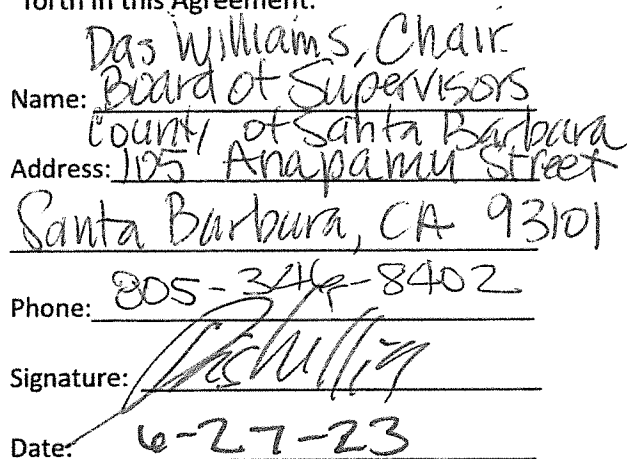 forth in this Agreement.
Das Williams, Chair
Name: Board of Supervisors
County of Santa Barbara
Address: 105 Anapamu Street
Santa Barbara, CA 93101
Phone: 805-346-8402
Signature: Das Williams
Date: 6-27-23